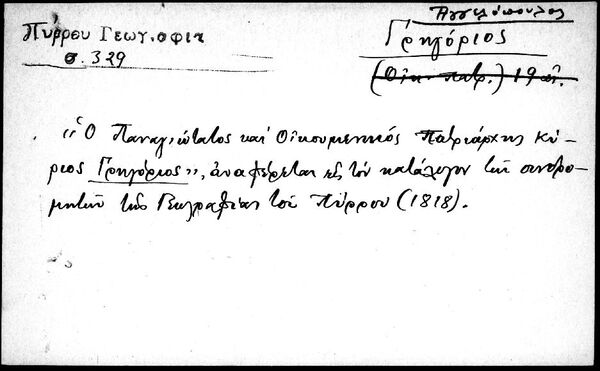 Πύρρου Γεωγραφία
σ. 329
Ἀγγελόπουλος
Γρηγόριος
(Οἰκ. πατρ.) 19 αἰ.
"Ὁ Παναγιώτατος καὶ Οἰκουμενικός Πατριάρχης Κύ-
ριος Γρηγόριος", ἀναφέρεται εἰς τὸν κατάλογον τῶν συνδρο-
μητῶν τῆς Γεωγραφίας τοῦ Πύρρου (1818).